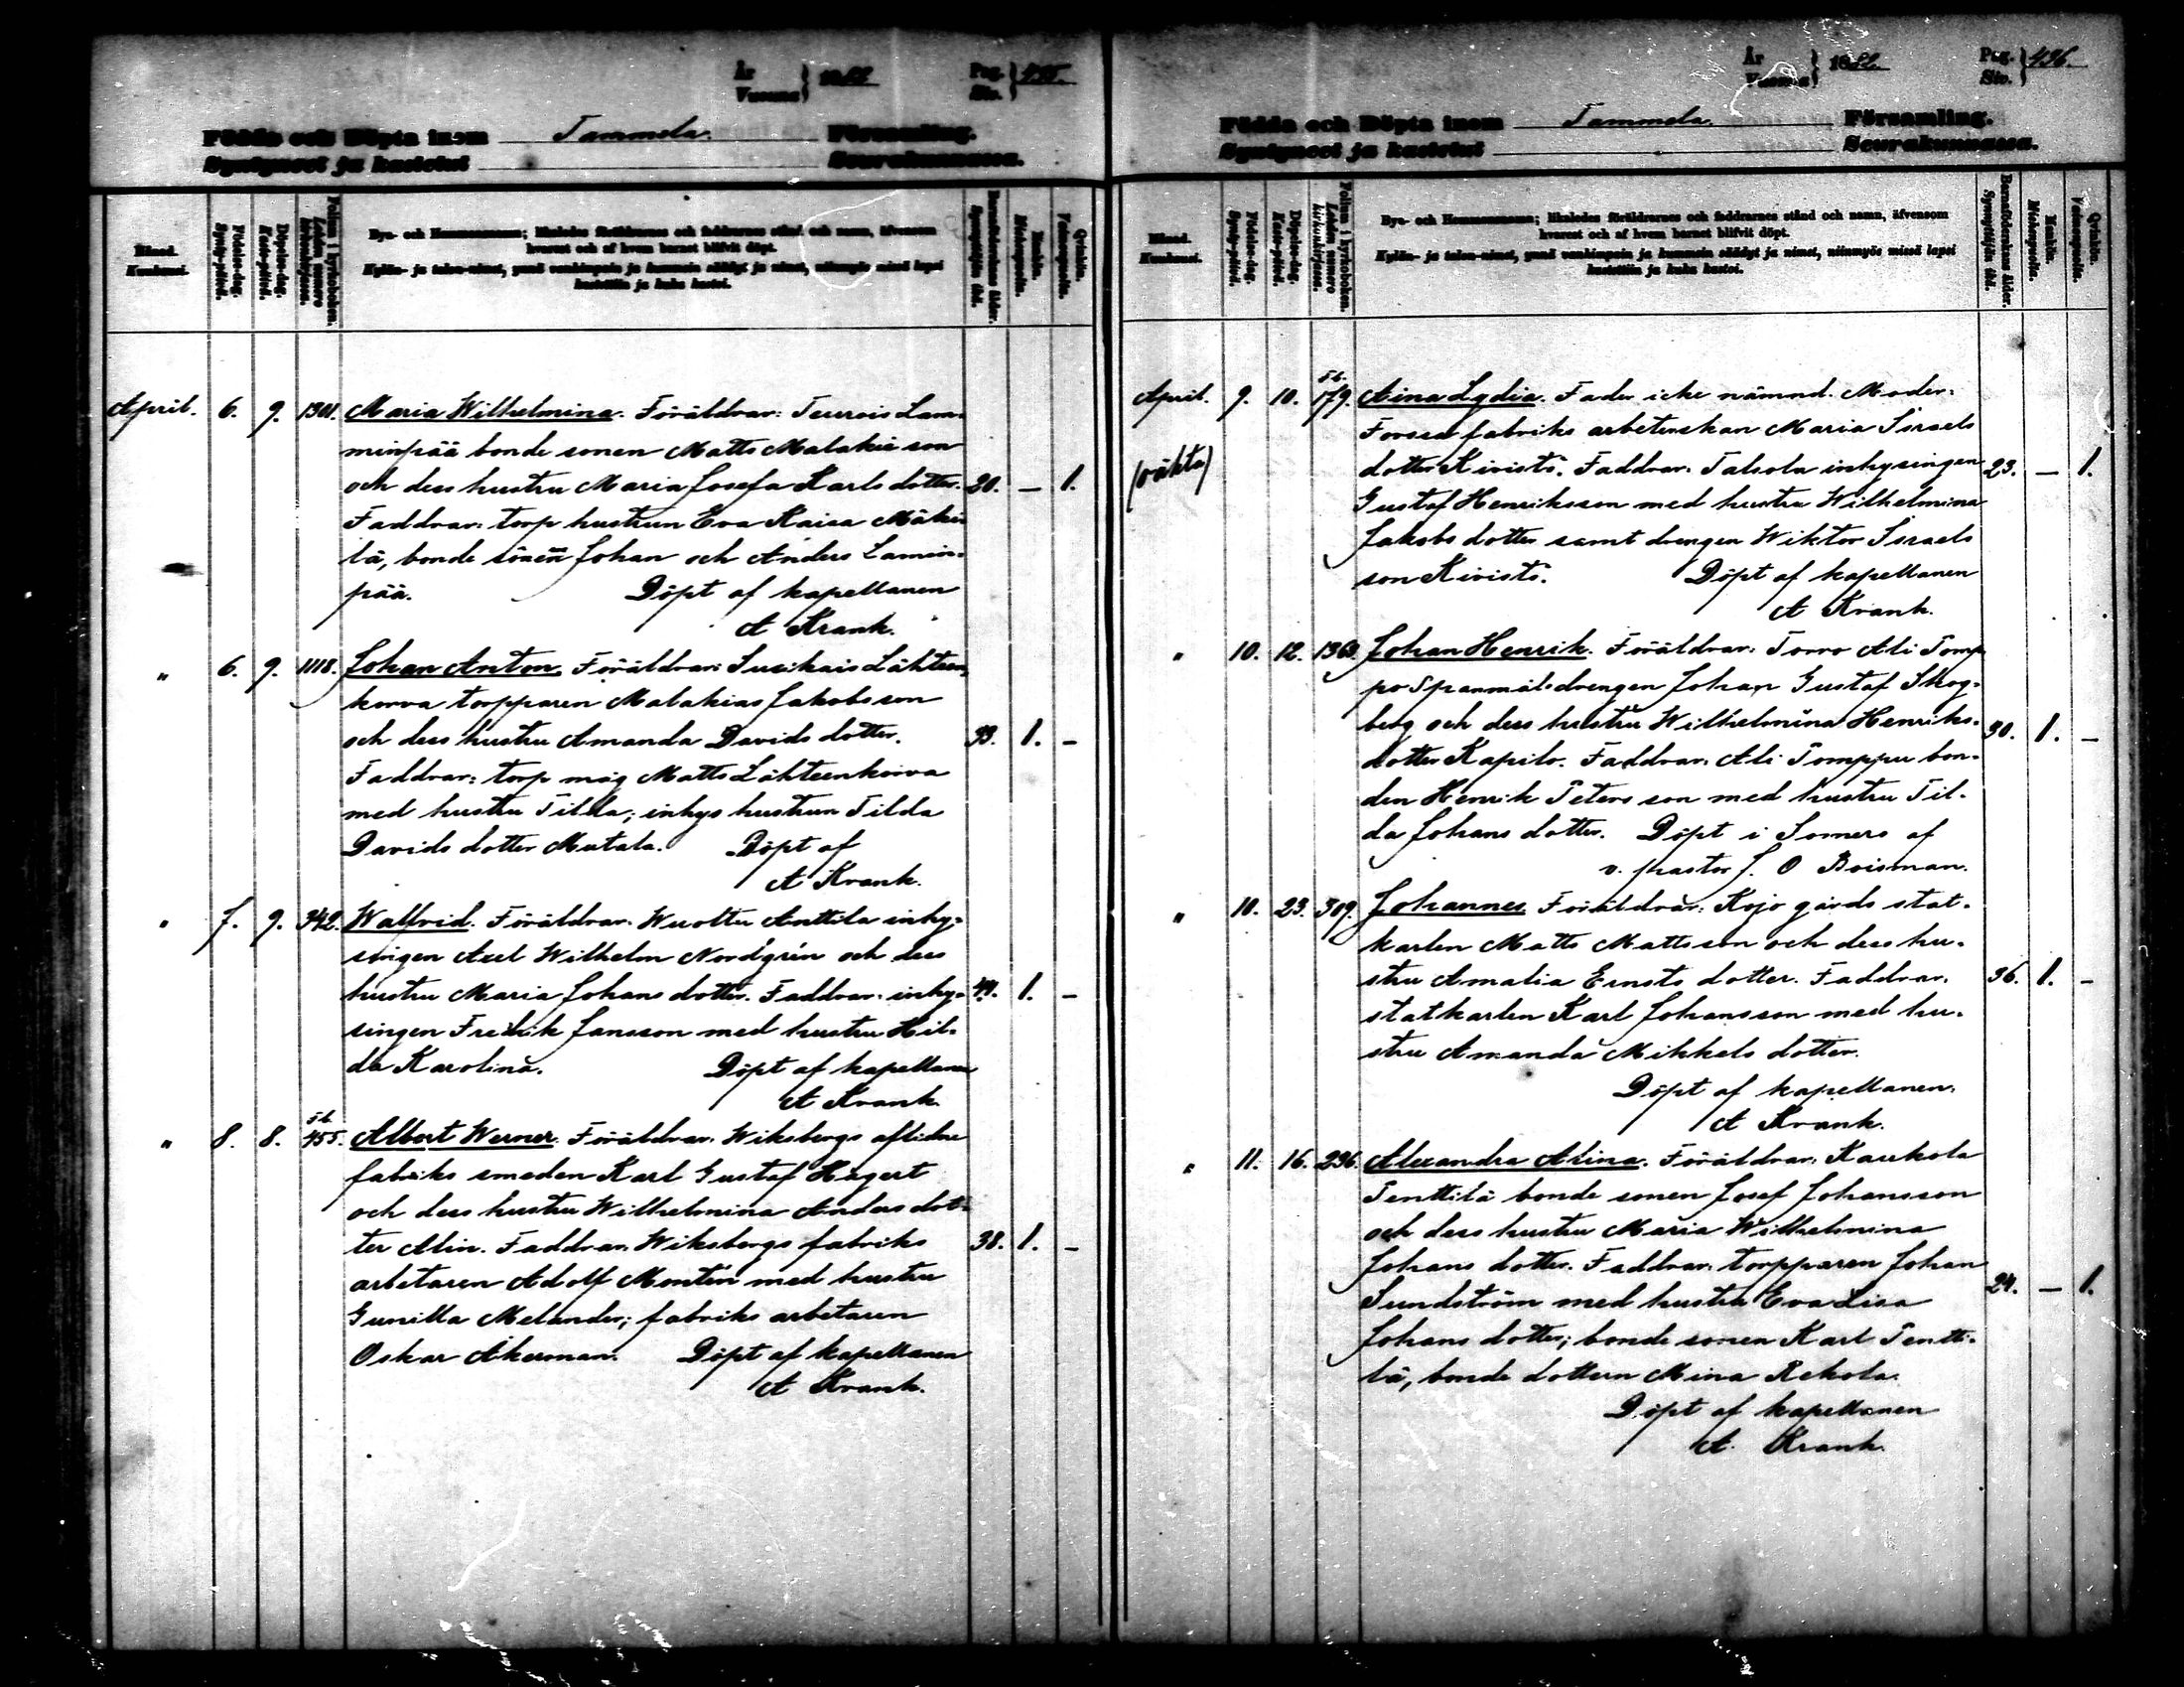 År
Vuonna
Pag.
Siv.
Födda och Döpta inom Tammela Församling.
Syntyneet ja kastetut Seurakunnassa.
Månad.
Kuukausi.
Födelse-dag.
Synty-päivä.
Döpelse-dag.
Kaste-päivä.
Folium i kyrkoboken.
Lehden numero kirkonkirjassa.
By- och Hemmansnamn; likaledes föräldrarnes och faddrarnes stånd och namn, äfvensom
hvarest och af hvem barnet blifvit döpt.
Kylän- ja talon-nimet, ynnä vanhimpain ja kummein säädyt ja nimet, niinmyös missä lapsi
kastettiin ja kuka kastoi.
Barnaföderskans ålder.
Synnyttäjän ikä.
Mankön.
Miehenpuolta.
Qvinkön.
Vaimonpuolta.
April. 6. 9. 1301. Maria Wilhelmina. Föräldrar: Teurois Lam-
minpää bonde sonen Matts Malakias son
och dess hustru Maria Josefa Karls dotter. 20. — 1.
Faddrar: torp hustrun Eva Kaisa Mäki-
lä, bonde sönen Johan och Anders Lamin-
pää. Döpt af kapellanen
A Krank.
" 6. 9. 1118. Johan Anton. Föräldrar: Susikais Lähteen-
korva torpparen Malakias Jakobs son
och dess hustru Amanda Davids dotter. 33. 1. —
Faddrar: torp måg Matts Lähteenkorva
med hustru Tilda; inhys hustrun Tilda
Davids dotter Mutala. Döpt af
A Krank.
" 7. 9. 342. Walfrid. Föräldrar: Wuoltu Anttila inhy-
singen Axel Wilhelm Nordgrén och dess
hustru Maria Johans dotter. Faddrar: inhy- 1. —
singen Fredrik Jansson med hustru Hil-
da Karolina. Döpt af kapellanen
A Krank.
" 8. 8. 455. Albert Werner. Föräldrar: Wiksbergs aflidne
fabriks smeden Karl Gustaf Hägert
och dess hustru Wilhelmina Anders dot-
ter Alin. Faddrar: Wiksbergs fabriks 38. 1. —
arbetaren Adolf Montin med hustru
Gunilla Melander; fabriks arbetaren
Oskar Åkerman. Döpt af kapellanen
A Krank.
År
Vuonna
Pag.
Siv. 436.
Födda och Döpta inom Tammela. Församling.
Syntyneet ja kastetut Seurakunnassa.
Månad.
Kuukausi.
Födelse-dag.
Synty-päivä.
Döpelse-dag.
Kaste-päivä.
Folium i kyrkoboken.
Lehden numero kirkonkirjassa.
By- och Hemmansnamn; likaledes föräldrarnes och faddrarnes stånd och namn, äfvensom
hvarest och af hvem barnet blifvit döpt.
Kylän- ja talon-nimet, ynnä vanhimpain ja kummein säädyt ja nimet, niinmyös missä lapsi
kastettiin ja kuka kastoi.
Barnaföderskans ålder.
Synnyttäjän ikä.
Mankön.
Miehenpuolta.
Qvinkön.
Vaimonpuolta.
April. 9. 10. 179. Aina Lydia. Fader icke nämnd. Moder:
Forssa fabriks arbeterskan Maria Israels
(oäkta) dotter Kivistö. Faddrar: Talsola inhysingen 23. — 1.
Gustaf Henriksson med hustru Wilhelmina
Jakobs dotter samt drengen Wiktor Israels
son Kivistö. Döpt af kapellanen
A Krank.
" 10. 12. 1363. Johan Henrik. Föräldrar: Torro Ali Tomp-
po Spanmålsdrengen Johan Gustaf Skog-
berg och dess hustru Wilhelmina Henriks- 30. 1. —
dotter Kapilo. Faddrar: Ali Tomppu bon-
den Henrik Peters son med hustru Til-
da Johans dotter. Döpt i Somero af
v. pastor J. O Boisman.
" 10. 23. 309. Johannes Föräldrar: Kojo gårds stat-
karlen Matts Mattsson och dess hu-
stru Amalia Ernsts dotter. Faddrar: 36. 1. —
statkarlen Karl Johansson med hu-
stru Amanda Mikkels dotter.
Döpt af kapellanen.
A Krank.
" 11. 16. 236. Alexandra Alina. Föräldrar: Kaukola
Penttilä bonde sonen Josef Johansson
och dess hustru Maria Wilhelmina
Johans dotter. Faddrar: torpparen Johan
Sundström med hustru Eva Lisa 24. — 1.
Johans dotter; bonde sonen Karl Pentti-
lä, bonde dottern Mina Rekola.
Döpt af kapellanen
A. Krank.